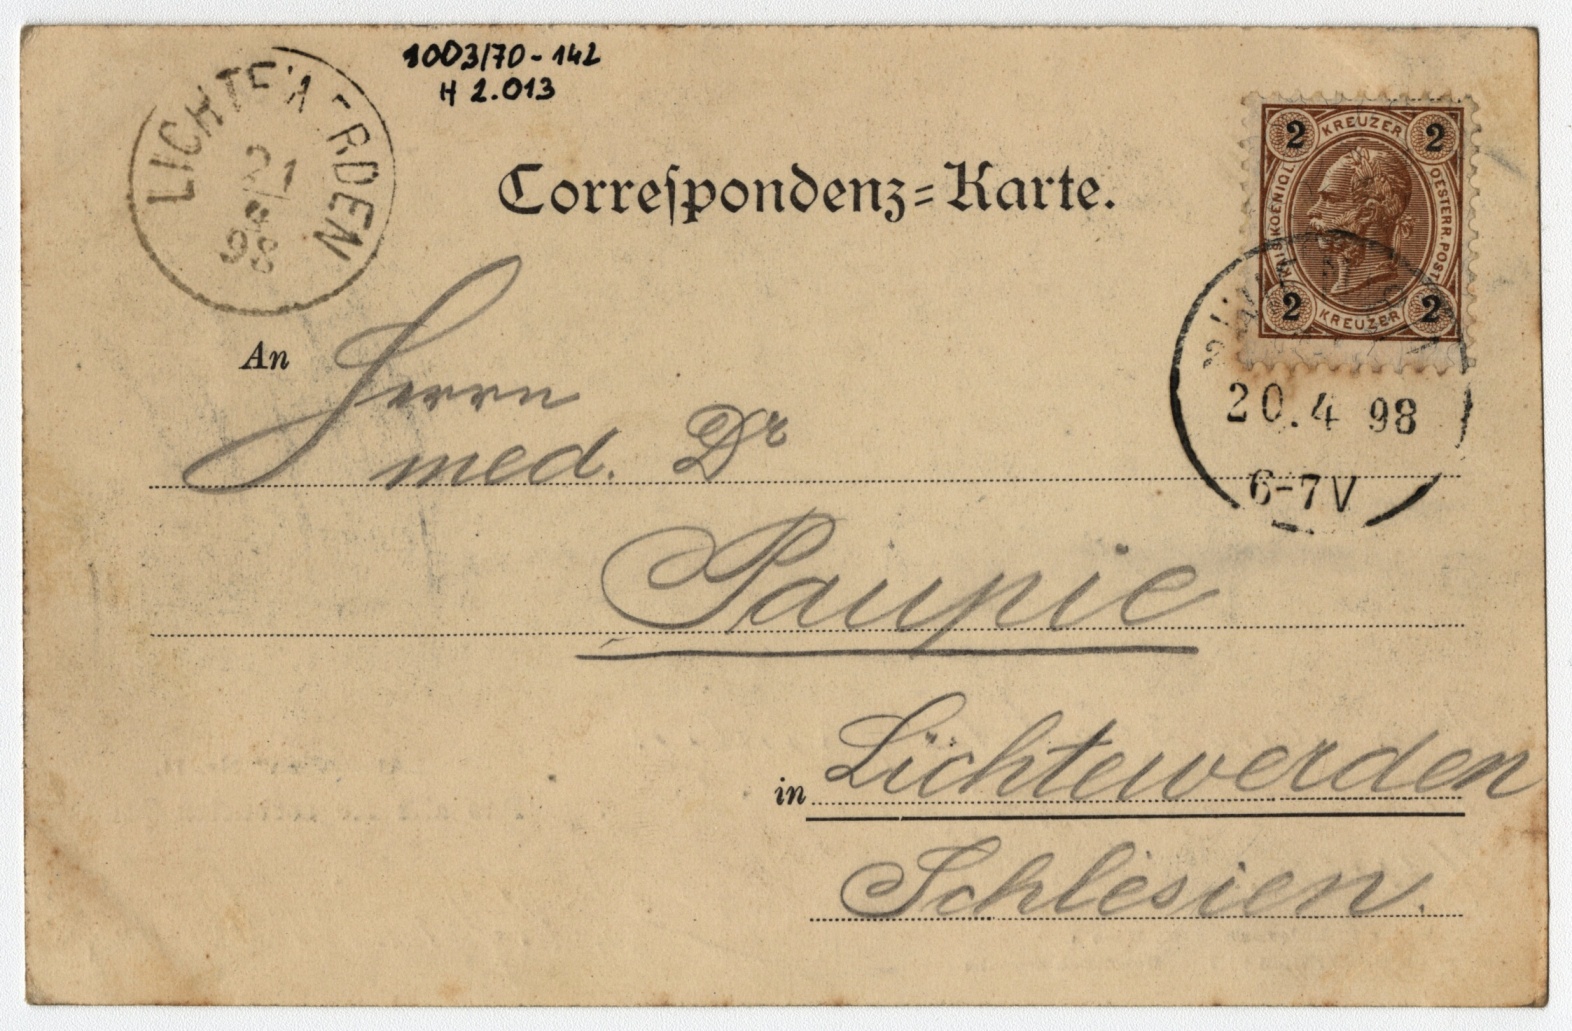 1003/70-142
H 2.013
LICHTEWERDEN
21/4
98
Correſpondenz=Karte.
2 KREUZER 2
KAIS. KOENIGL. OESTERR. POST
2 KREUZER 2
20.4 98
6-7V
An Herrn
med. Dr
Paupie
in Lichtewerden
Schlesien.